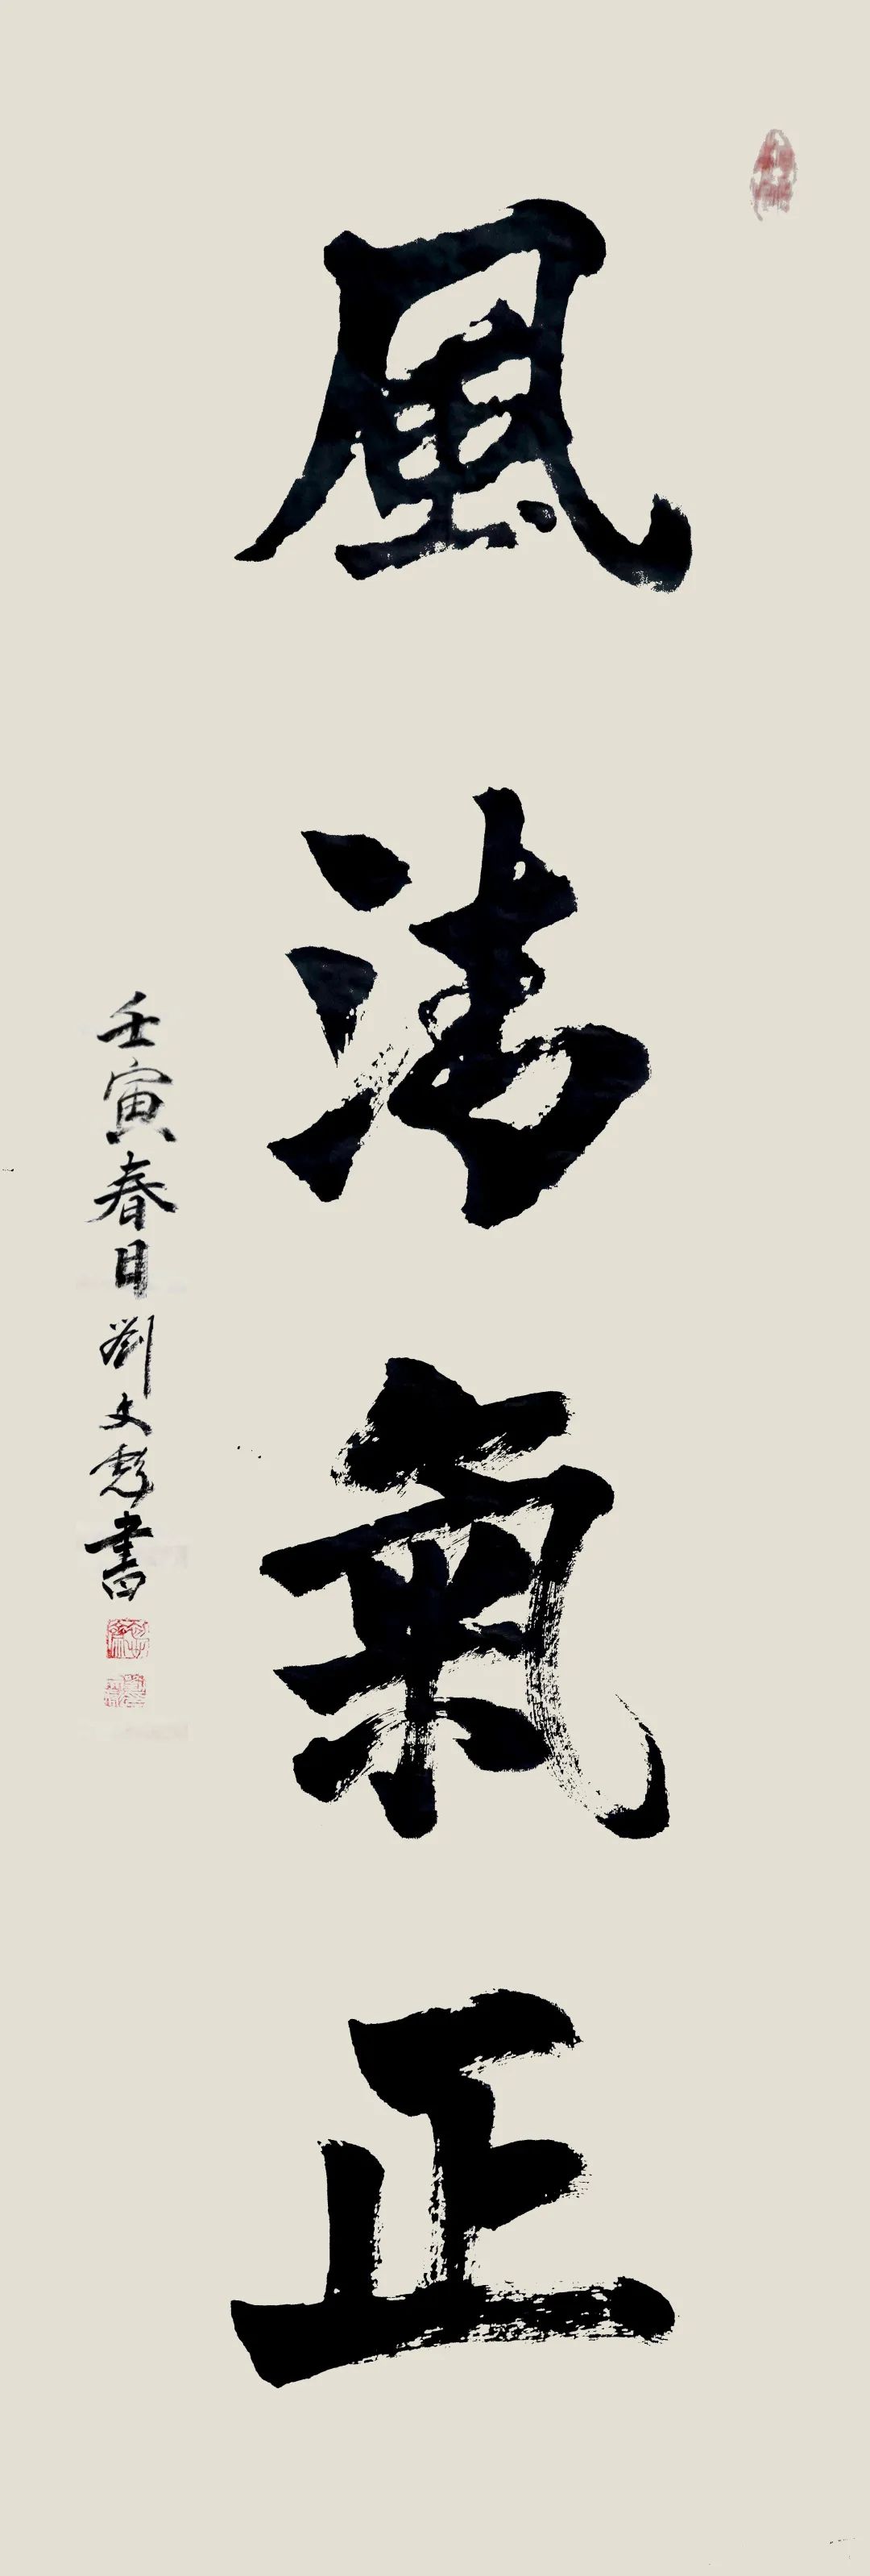 風清氣正
壬寅春日劉文彪書